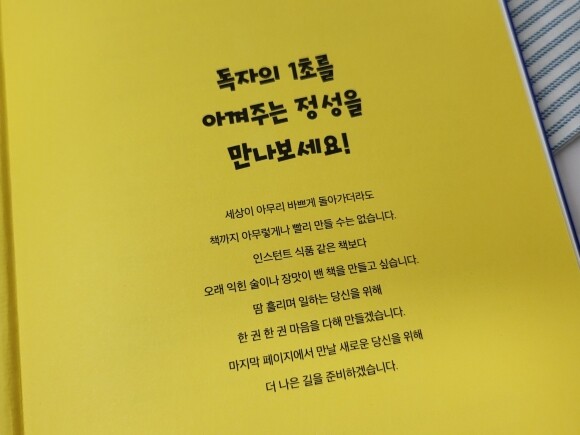 독자의 1초를
아껴주는 정성을
만나보세요!
세상이 아무리 바쁘게 돌아가더라도
책까지 아무렇게나 빨리 만들 수는 없습니다.
인스턴트 식품 같은 책보다
오래 익힌 술이나 장맛이 밴 책을 만들고 싶습니다.
땀 흘리며 일하는 당신을 위해
한 권 한 권 마음을 다해 만들겠습니다.
마지막 페이지에서 만날 새로운 당신을 위해
더 나은 길을 준비하겠습니다.